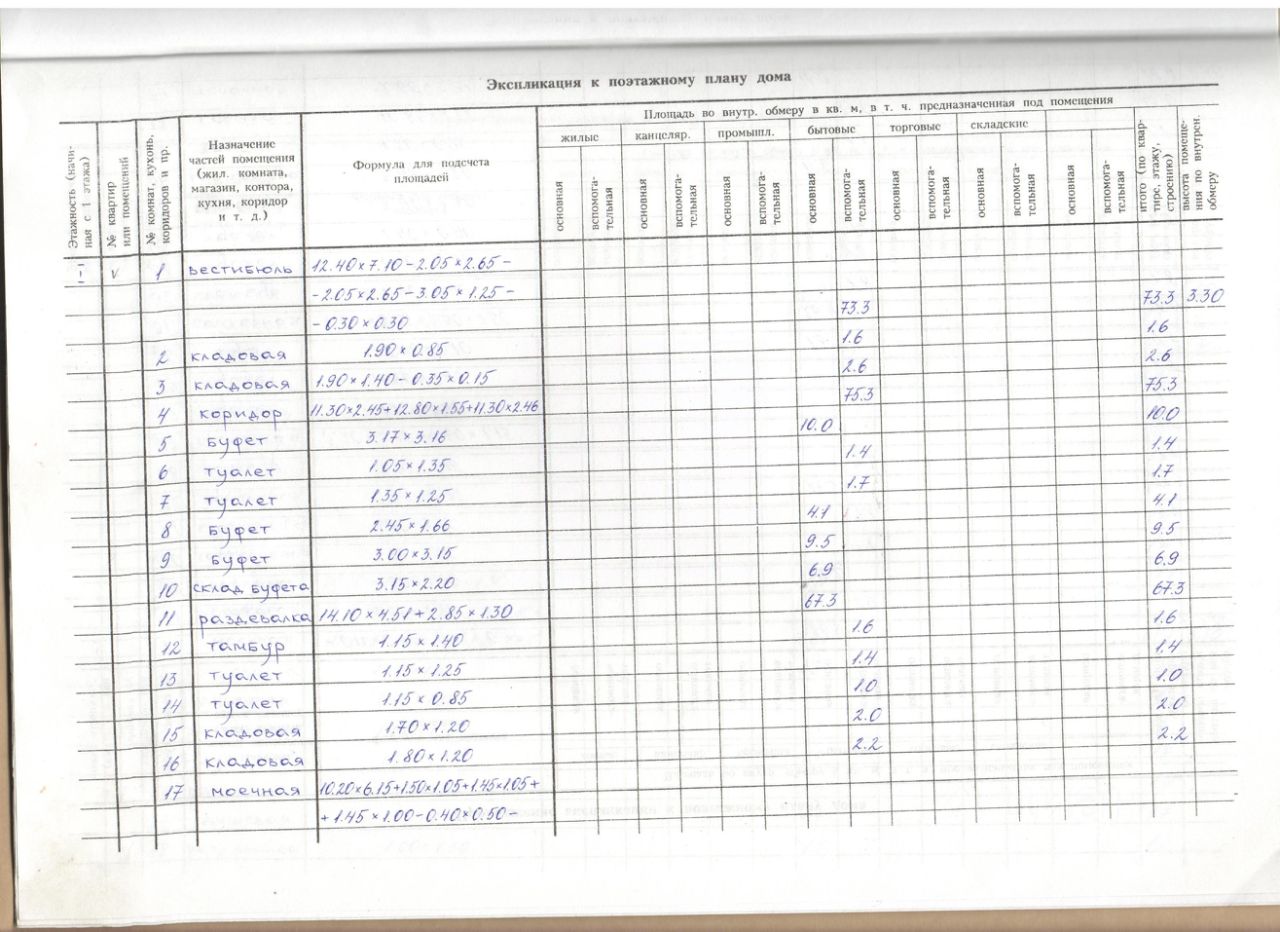 Экспликация к поэтажному плану дома
Этажность (начиная с 1 этажа)
№ квартир или помещений
№ комнат, кухонь, коридоров и пр.
Назначение
частей помещения
(жил. комната,
магазин, контора,
кухня, коридор
и т. д.)
Формула для подсчета
площадей
Площадь во внутр. обмеру в кв. м, в т. ч. предназначенная под помещения
жилые канцеляр. промышл. бытовые торговые складские
основная вспомога-тельная основная вспомога-тельная основная вспомога-тельная основная вспомога-тельная основная вспомога-тельная основная вспомога-тельная основная вспомога-тельная
итого (по квар-тире, этажу, строению)
высота помеще-ния по внутрен. обмеру
I V 1 вестибюль 12.40×7.10-2.05×2.65-
-2.05×2.65-3.05×1.25-
-0.30×0.30 73.3 73.3 3.30
2 кладовая 1.90×0.85 1.6 1.6
3 кладовая 1.90×1.40-0.35×0.15 2.6 2.6
4 коридор 11.30×2.45+12.80×1.55+11.30×2.46 75.3 75.3
5 буфет 3.17×3.16 10.0 10.0
6 туалет 1.05×1.35 1.4 1.4
7 туалет 1.35×1.25 1.7 1.7
8 буфет 2.45×1.66 4.1 4.1
9 буфет 3.00×3.15 9.5 9.5
10 склад буфета 3.15×2.20 6.9 6.9
11 раздевалка 14.10×4.51+2.85×1.30 67.3 67.3
12 тамбур 1.15×1.40 1.6 1.6
13 туалет 1.15×1.25 1.4 1.4
14 туалет 1.15×0.85 1.0 1.0
15 кладовая 1.70×1.20 2.0 2.0
16 кладовая 1.80×1.20 2.2 2.2
17 моечная 10.20×6.15+1.50×1.05+1.45×1.05+
+1.45×1.00-0.40×0.50-